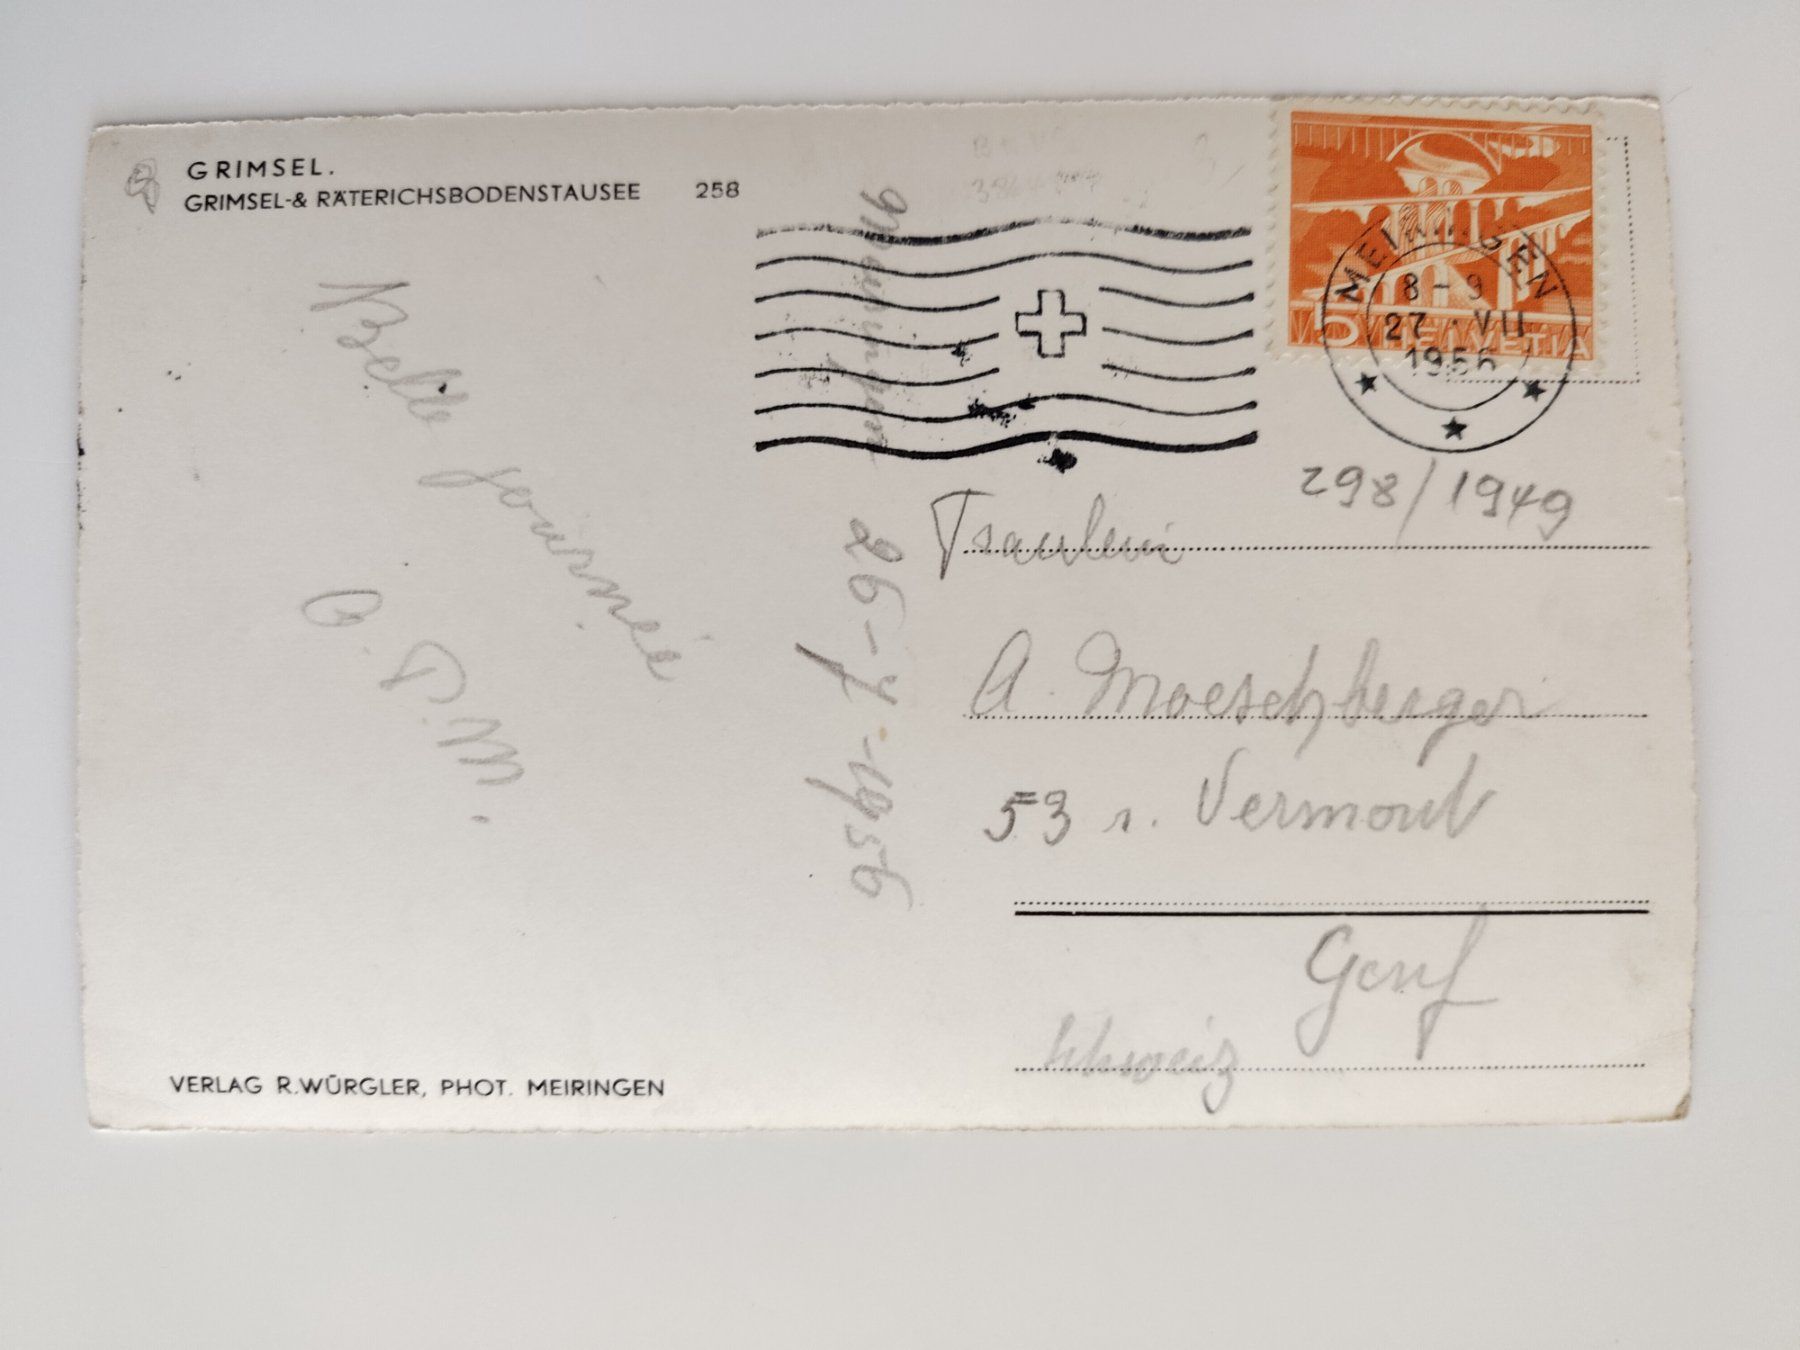 GRIMSEL.
GRIMSEL-& RÄTERICHSBODENSTAUSEE 258
MEIRINGEN
8-9
27. VII
1956
5 HELVETIA
298/1949
Belle journée
26-7-1956
Fraulein
A. Moeschberger
53 r. Vermont
Genf
Schweiz
VERLAG R.WÜRGLER, PHOT. MEIRINGEN